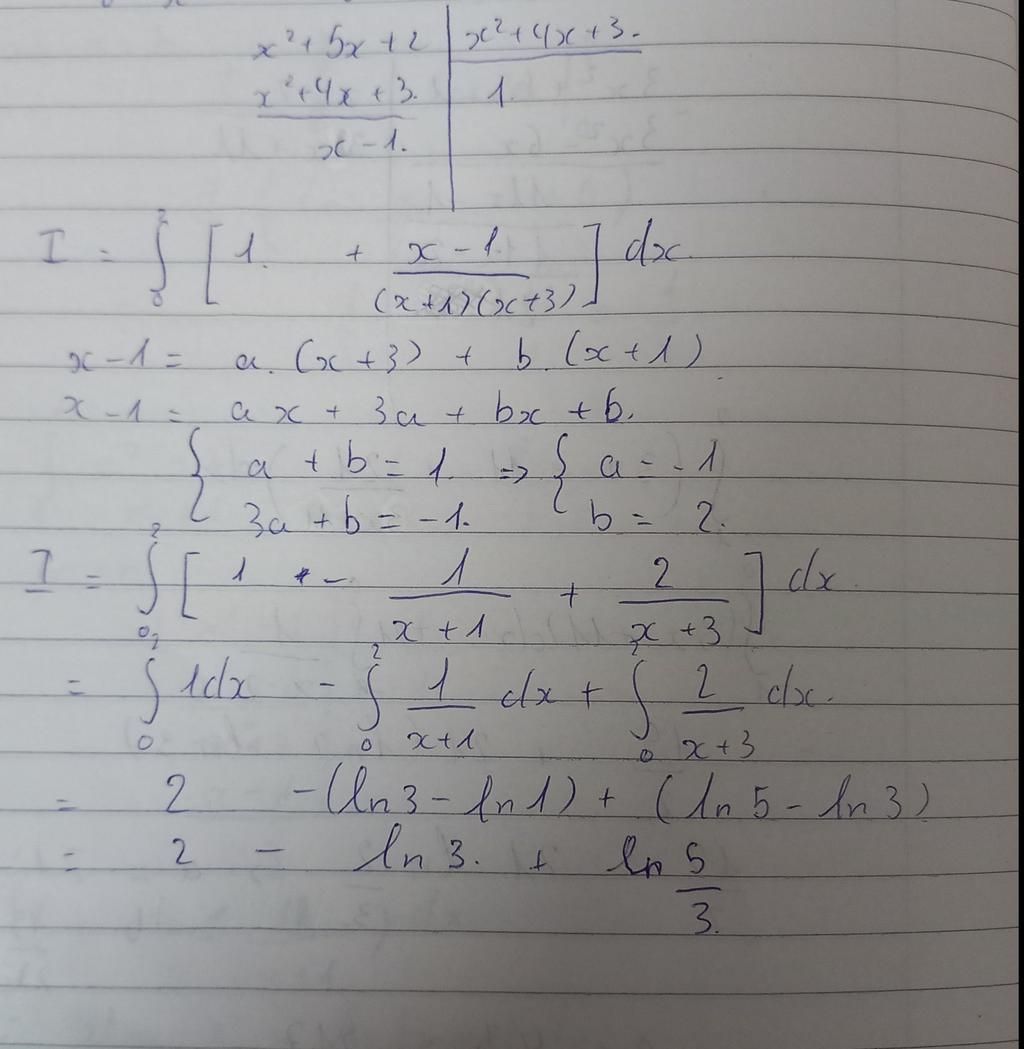 x² + 5x + 2 | x² + 4x + 3.
x² + 4x + 3. | 1.
x - 1.
I = ∫₀² [ 1. + (x - 1.)/((x+1)(x+3)) ] dx.
x - 1 = a. (x + 3) + b. (x + 1)
x - 1 = ax + 3a + bx + b.
{ a + b = 1. => { a = -1
3a + b = -1. b = 2.
I = ∫₀² [ 1 - 1/(x + 1) + 2/(x + 3) ] dx.
= ∫₀² 1dx - ∫₀² 1/(x+1) dx + ∫₀² 2/(x+3) dx.
= 2 - (ln3 - ln1) + (ln5 - ln3)
= 2 - ln3. + ln 5/3.